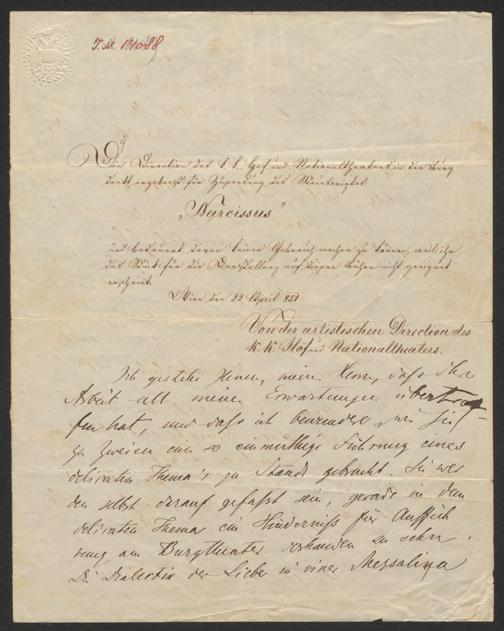 Die Direction des k. k. Hof und Nationaltheaters in der Burg
dankt ergebenst für Zusendung des Manuscriptes:
„Narcissus"
und bedauert, davon keinen Gebrauch machen zu können, weil ihr
das Stück für die Darstellung auf dieser Bühne nicht geeignet
erscheint.
Wien den 22 April 851
Von der artistischen Direction des
K. K. Hof und Nationaltheaters.
Ich gestehe Ihnen, mein Herr, daß Ihre
Arbeit all meine Erwartungen übertrof-
fen hat, und daß ich bewundre, wie Sie
zu Zweien eine so einmüthige Führung eines
delicaten Thema's zu Stande gebracht. Sie wer
den selbst darauf gefaßt sein, gerade in dem
delicaten Thema ein Hinderniß für Auffüh
rung am Burgtheater vorhanden zu sehn.
Die Dialectik der Liebe in einer Messalina